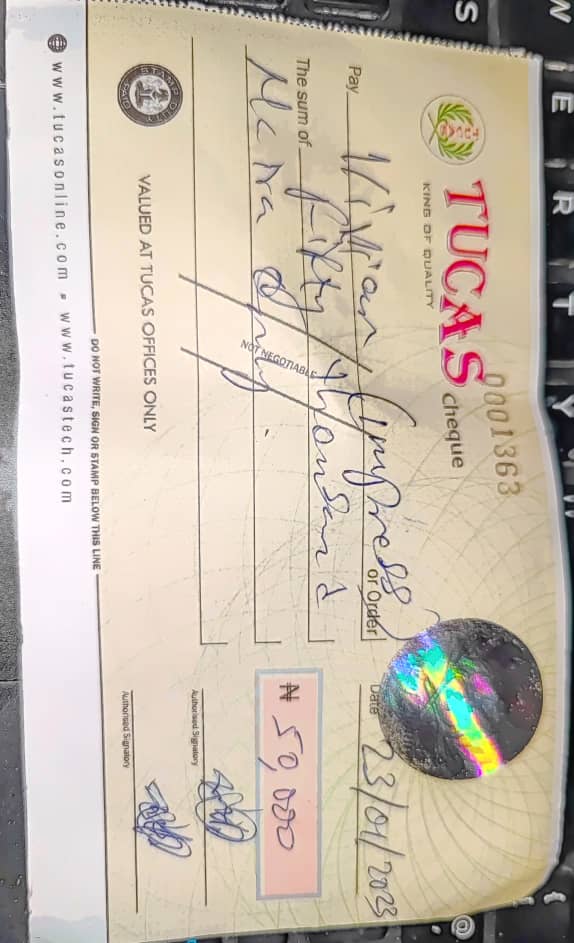 0001363
TUCAS cheque
KING OF QUALITY
Date 23/01/2023
Pay Vivian Empress or Order
The sum of Fifty thousand
Naira Only
₦ 50,000
NOT NEGOTIABLE
Authorised Signatory
VALUED AT TUCAS OFFICES ONLY
Authorised Signatory
STAMP DUTY
DO NOT WRITE, SIGN OR STAMP BELOW THIS LINE
www.tucasonline.com www.tucastech.com
W
E
R
T
Y
S